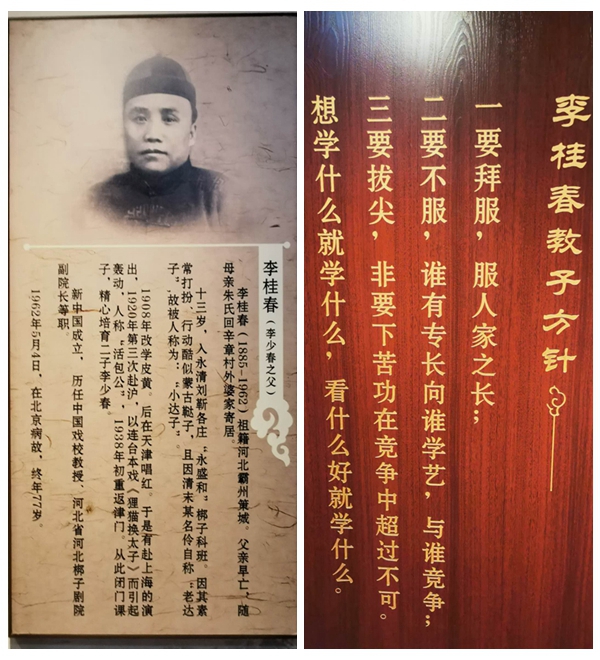 李桂春（李少春之父）
李桂春（1885-1962）祖籍河北霸州策城。父亲早亡，随
母亲朱氏回辛章村外婆家寄居。
十三岁，入永清刘靳各庄“永盛和”梆子科班。因其素
常打扮、行动酷似蒙古鞑子，且因清末某名伶自称“老达
子”，故被人称为：“小达子”。
1908年改学皮黄。后在天津唱红。于是有赴上海的演
出，1920年第三次赴沪，以连台本戏《狸猫换太子》而引起
轰动，人称“活包公”，1938年初重返津门。从此闭门课
子，精心培育二子李少春。
新中国成立，历任中国戏校教授、河北省河北梆子剧院
副院长等职。
1962年5月4日，在北京病故，终年77岁。
李桂春教子方针
一要拜服，服人家之长；
二要不服，谁有专长向谁学艺，与谁竞争；
三要拔尖，非要下苦功在竞争中超过不可。
想学什么就学什么，看什么好就学什么。